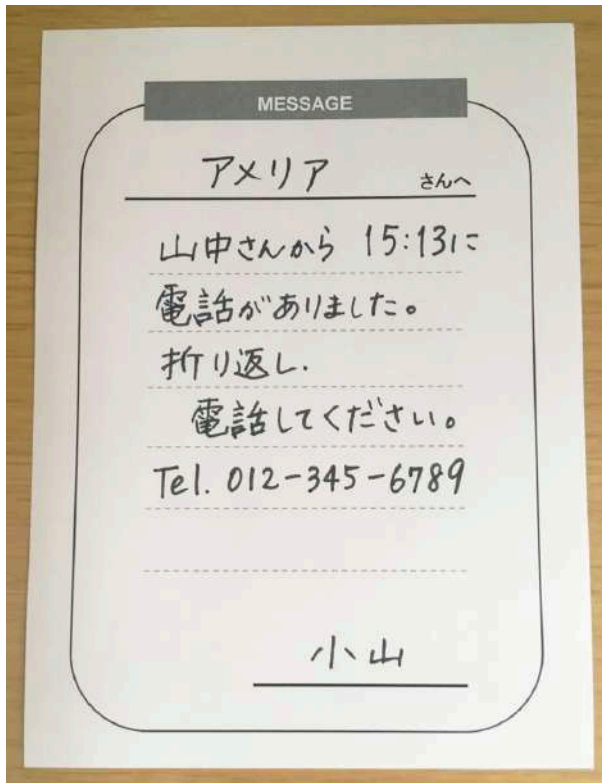 MESSAGE
アメリア さんへ
山中さんから 15:13に
電話がありました。
折り返し.
電話してください。
Tel. 012-345-6789
小山